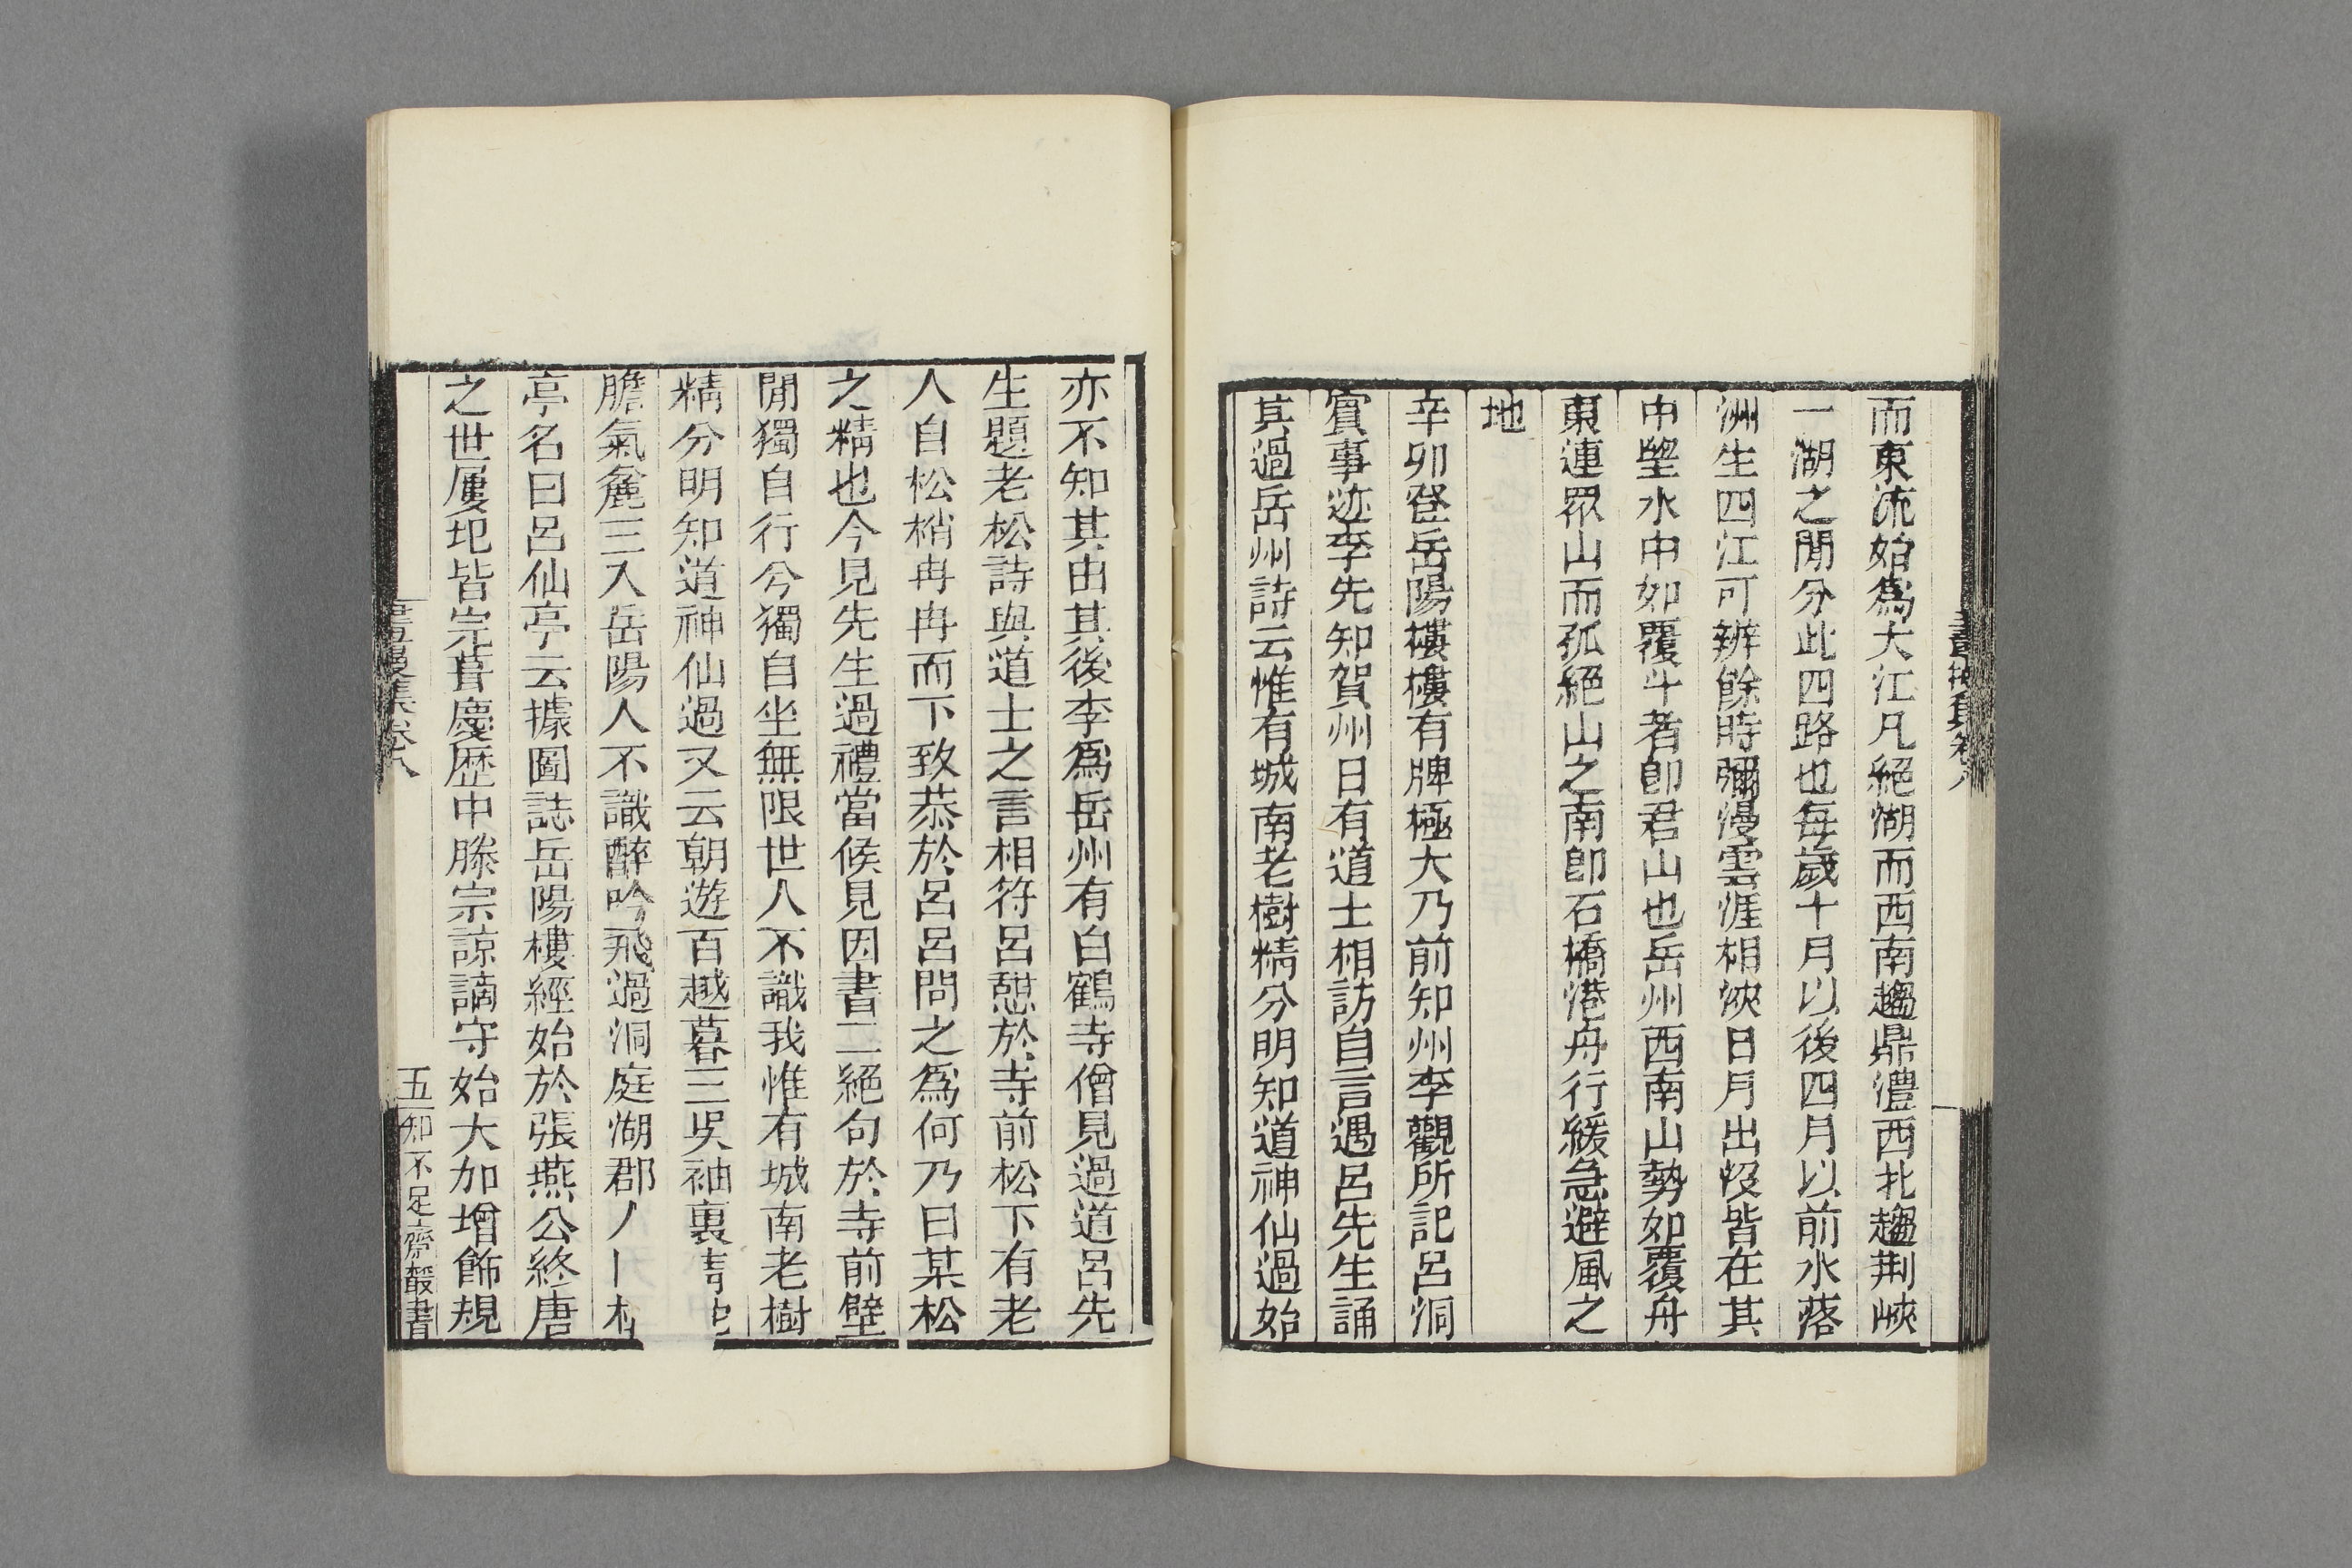 而東流始爲大江凡絕湖而西南趨鼎澧西北趨荆峽
一湖之閒分此四路也每歲十月以後四月以前水落
洲生四江可辨餘時彌漫雲涯相浹日月出沒皆在其
中望水中如覆斗者卽君山也岳州西南山勢如覆舟
東連眾山而孤絕山之南卽石橋港舟行緩急避風之
地
辛卯登岳陽樓樓有牌極大乃前知州李觀所記呂洞
賓事迹李先知賀州日有道士相訪自言遇呂先生誦
其過岳州詩云惟有城南老樹精分明知道神仙過始
亦不知其由其後李爲岳州有白鶴寺僧見過道呂先
生題老松詩與道士之言相符呂憩於寺前松下有老
人自松梢冉冉而下致恭於呂呂問之爲何乃曰某松
之精也今見先生過禮當候見因書二絕句於寺前壁
閒獨自行兮獨自坐無限世人不識我惟有城南老樹
精分明知道神仙過又云朝遊百越暮三吳袖裏
膽氣麄三入岳陽人不識醉吟飛過洞庭湖郡
亭名曰呂仙亭云據圖誌岳陽樓經始於張燕公終唐
之世屢圯皆完葺慶歷中滕宗諒謫守始大加增飾規
漫集卷八
五
知不足齋叢書